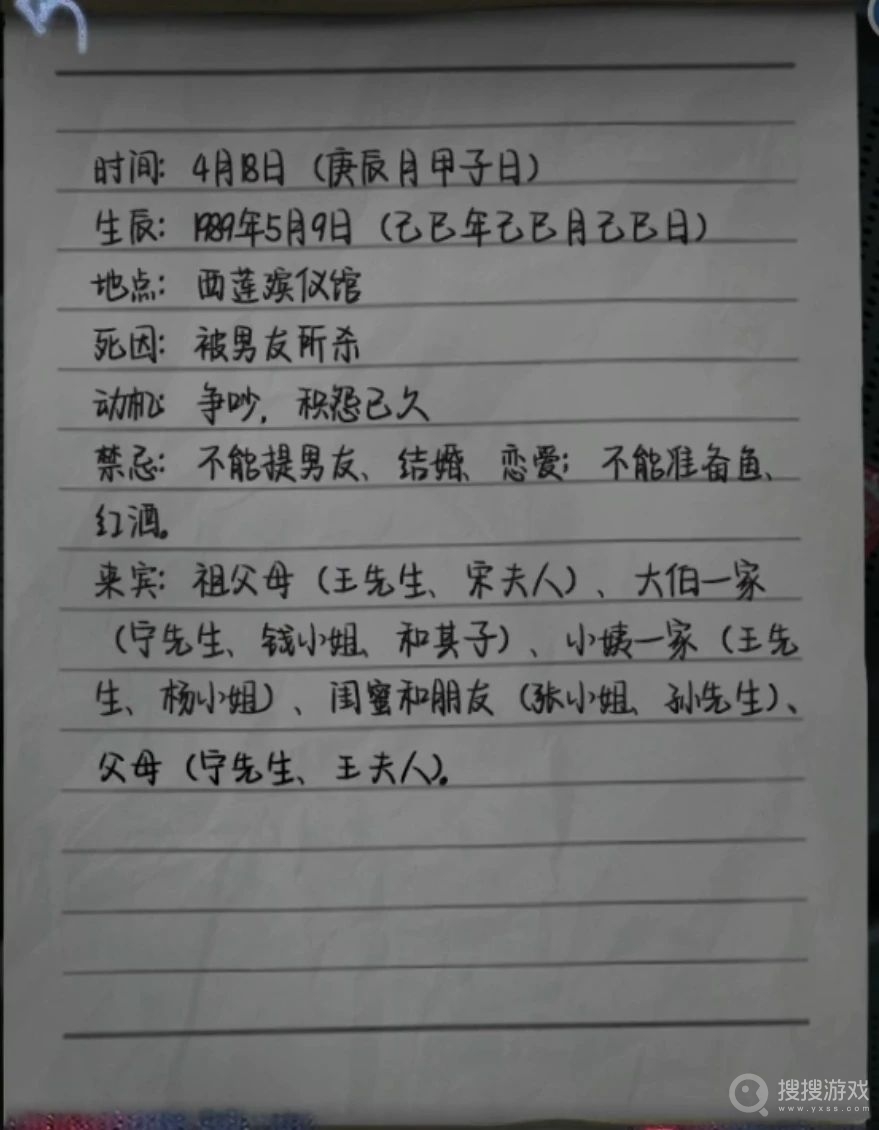 时间：4月18日（庚辰月甲子日）
生辰：1989年5月9日（己巳年己巳月己巳日）
地点：西莲殡仪馆
死因：被男友所杀
动机：争吵，积怨已久
禁忌：不能提男友、结婚、恋爱；不能准备鱼、
红酒。
来宾：祖父母（王先生、宋夫人）、大伯一家
（宁先生、钱小姐、和其子）、小姨一家（王先
生、杨小姐）、闺蜜和朋友（张小姐、孙先生）、
父母（宁先生、王夫人）。
搜搜游戏
www.yxss.com